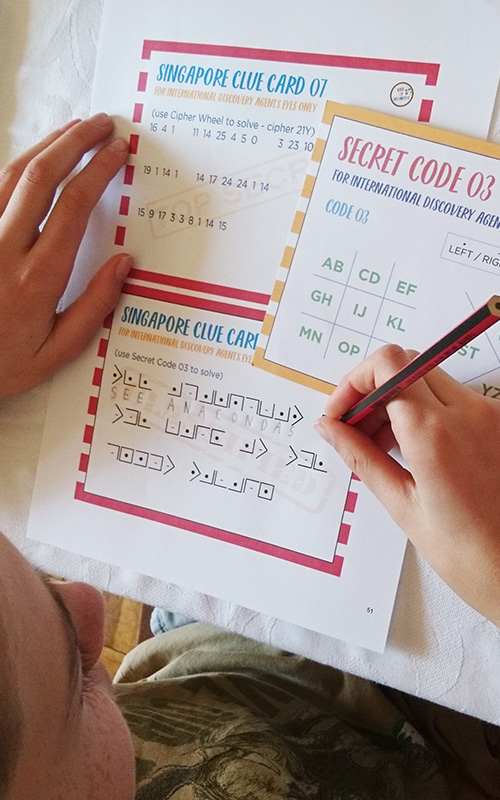 SINGAPORE CLUE CARD 07
FOR INTERNATIONAL DISCOVERY AGENTS EYES ONLY
(use Cipher Wheel to solve - cipher 21Y)
16 4 1 11 14 25 4 5 0 3 23 10
19 1 14 1 14 17 24 24 1 14
TOP SECR
15 9 17 3 3 8 1 14 15
SECRET CODE 03
FOR INTERNATIONAL DISCOVERY AGEN
CODE 03
LEFT / RIG
AB CD EF
GH IJ KL
MN OP
ST
YZ
SINGAPORE CLUE CAR
FOR INTERNATIONAL DISCOVERY AGENTS EYE
(use Secret Code 03 to solve)
SEE ANACONDAS
51